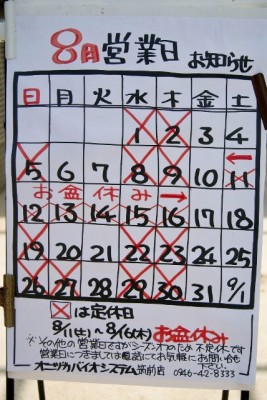 8月営業日 お知らせ
日 月 火 水 木 金 土
1 2 3 4
5 6 7 8 9 10 11
お盆休み
12 13 14 15 16 17 18
19 20 21 22 23 24 25
26 27 28 29 30 31 9/1
は定休日
8/11(土)~8/16(木)お盆休み
※その他の営業日ですがシーズンオフのため 不定休です
営業日につきましては電話にてお気軽にお問い合せ
下さい。
オーニックバイオシステム 筑前店 0946-42-8333